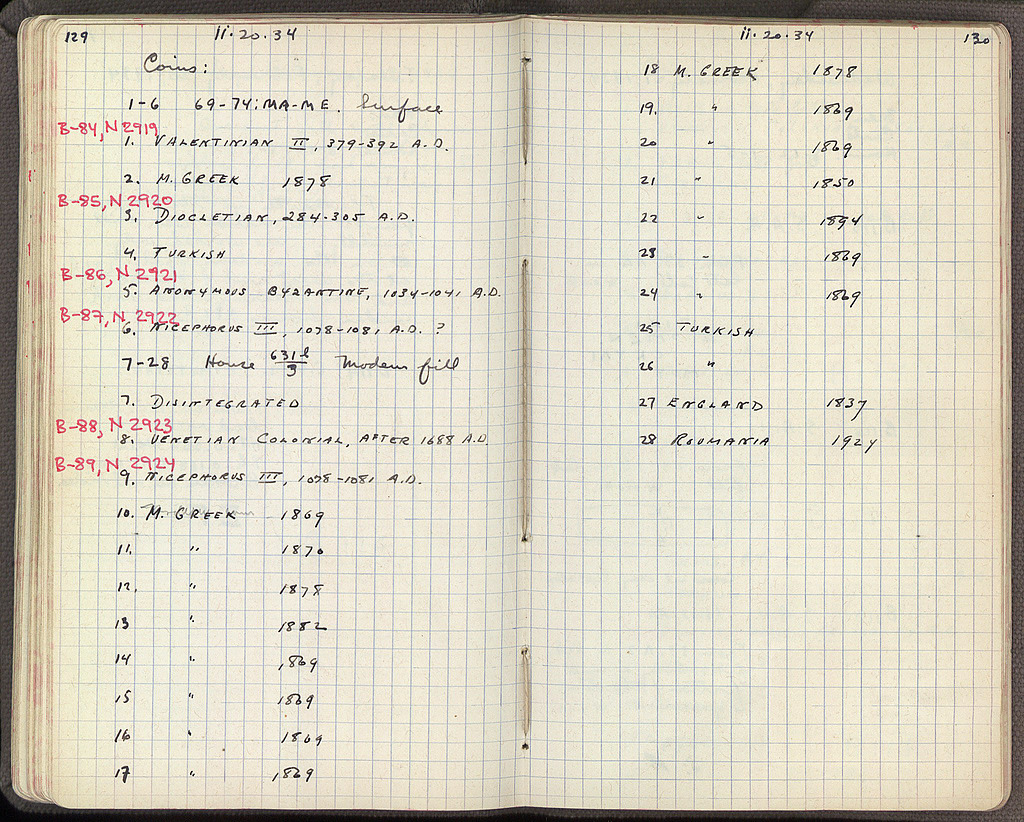 129 ii·20·34
Coins:
1-6 69-74:MA-ME. Surface
B-84, N 2919
1. VALENTINIAN II, 379-392 A.D.
2. M. GREEK 1878
B-85, N 2920
3. DIOCLETIAN, 284-305 A.D.
4. TURKISH
B-86, N 2921
5. ANONYMOUS BYZANTINE, 1034-1041 A.D.
B-87, N 2922
6. NICEPHORUS III, 1078-1081 A.D. ?
7-28 House 631b/3 Modern fill
7. DISINTEGRATED
B-88, N 2923
8. VENETIAN COLONIAL, AFTER 1688 A.D.
B-89, N 2924
9. NICEPHORUS III, 1078-1081 A.D.
10. M. GREEK 1869
11. " 1870
12. " 1878
13 " 1882
14 " 1869
15 " 1869
16 " 1869
17 " 1869
ii·20·34 130
18 M. GREEK 1878
19. " 1869
20 " 1869
21 " 1850
22 " 1894
23 " 1869
24 " 1869
25 TURKISH
26 "
27 ENGLAND 1837
28 ROUMANIA 1924